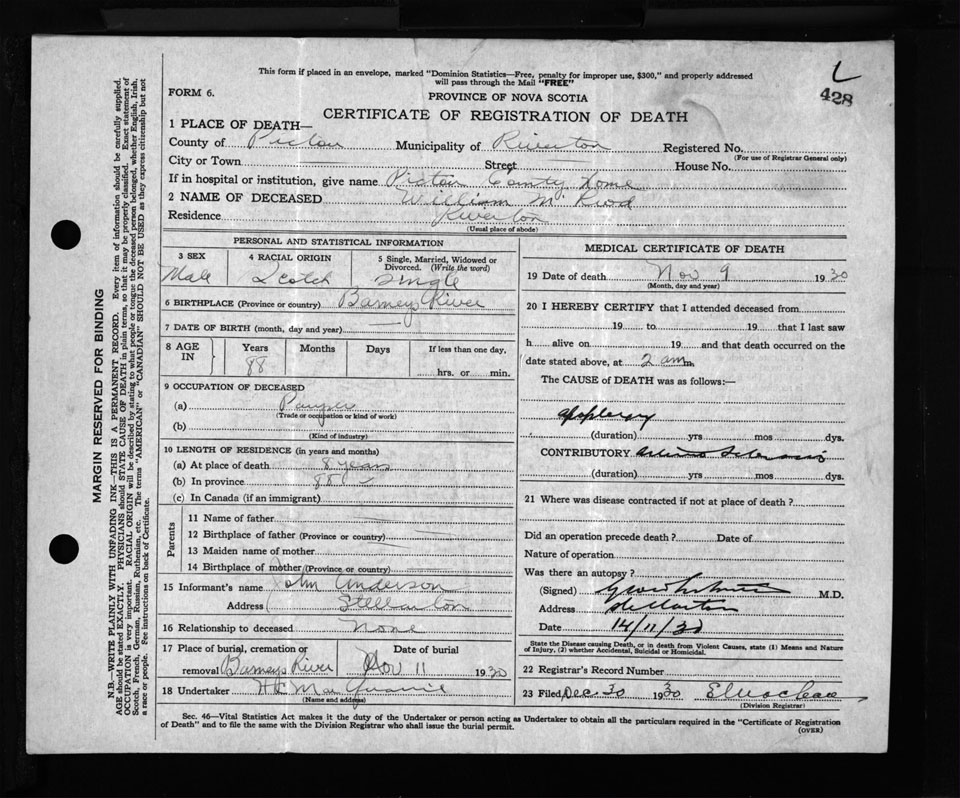 L
428
This form if placed in an envelope, marked "Dominion Statistics—Free, penalty for improper use, $300," and properly addressed
will pass through the Mail "FREE"
FORM 6.
PROVINCE OF NOVA SCOTIA
CERTIFICATE OF REGISTRATION OF DEATH
1 PLACE OF DEATH—
County of Pictou Municipality of Riverton Registered No.
(For use of Registrar General only)
City or Town Street House No.
If in hospital or institution, give name Pictou County Home
2 NAME OF DECEASED William
Residence Riverton
(Usual place of abode)
PERSONAL AND STATISTICAL INFORMATION
3 SEX 4 RACIAL ORIGIN 5 Single, Married, Widowed or
Divorced. (Write the word)
Male Scotch Single
6 BIRTHPLACE (Province or country) Barneys River
7 DATE OF BIRTH (month, day and year)
8 AGE IN Years Months Days If less than one day,
88 hrs. or min.
9 OCCUPATION OF DECEASED
(a) Pauper
(Trade or occupation or kind of work)
(b)
(Kind of industry)
10 LENGTH OF RESIDENCE (in years and months)
(a) At place of death 8 years
(b) In province 88
(c) In Canada (if an immigrant)
Parents
11 Name of father
12 Birthplace of father (Province or country)
13 Maiden name of mother
14 Birthplace of mother (Province or country)
15 Informant's name John Anderson
Address Stellarton
16 Relationship to deceased None
17 Place of burial, cremation or Date of burial
removal Barneys River Nov 11 1930
18 Undertaker
(Name and address)
MEDICAL CERTIFICATE OF DEATH
19 Date of death Nov 9 1930
(Month, day and year)
20 I HEREBY CERTIFY that I attended deceased from
19 to 19 that I last saw
h alive on 19 and that death occurred on the
date stated above, at 2 am m.
The CAUSE of DEATH was as follows:—
Apoplexy
(duration) yrs mos dys.
CONTRIBUTORY Arterio Sclerosis
(duration) yrs mos dys.
21 Where was disease contracted if not at place of death?
Did an operation precede death? Date of
Nature of operation
Was there an autopsy?
(Signed) M.D.
Address Stellarton
Date 14/11/30
State the Disease causing Death, or in death from Violent Causes, state (1) Means and Nature
of Injury, (2) whether Accidental, Suicidal or Homicidal.
22 Registrar's Record Number
23 Filed Dec 30 1930
(Division Registrar)
Sec. 46—Vital Statistics Act makes it the duty of the Undertaker or person acting as Undertaker to obtain all the particulars required in the "Certificate of Registration
of Death" and to file the same with the Division Registrar who shall issue the burial permit.
(OVER)
MARGIN RESERVED FOR BINDING
N.B.—WRITE PLAINLY WITH UNFADING INK—THIS IS A PERMANENT RECORD. Every item of information should be carefully supplied.
AGE should be stated EXACTLY. PHYSICIANS should STATE CAUSE OF DEATH in plain terms, so that it may be properly classified. Exact statement of
OCCUPATION is very important. RACIAL ORIGIN will be described by stating to what people or tongue the deceased person belonged, whether English, Irish,
Scotch, French, German, Russian, Ruthenian, etc. The terms "AMERICAN" or "CANADIAN" SHOULD NOT BE USED as they express citizenship but not
a race or people. Fee instructions on back of Certificate.